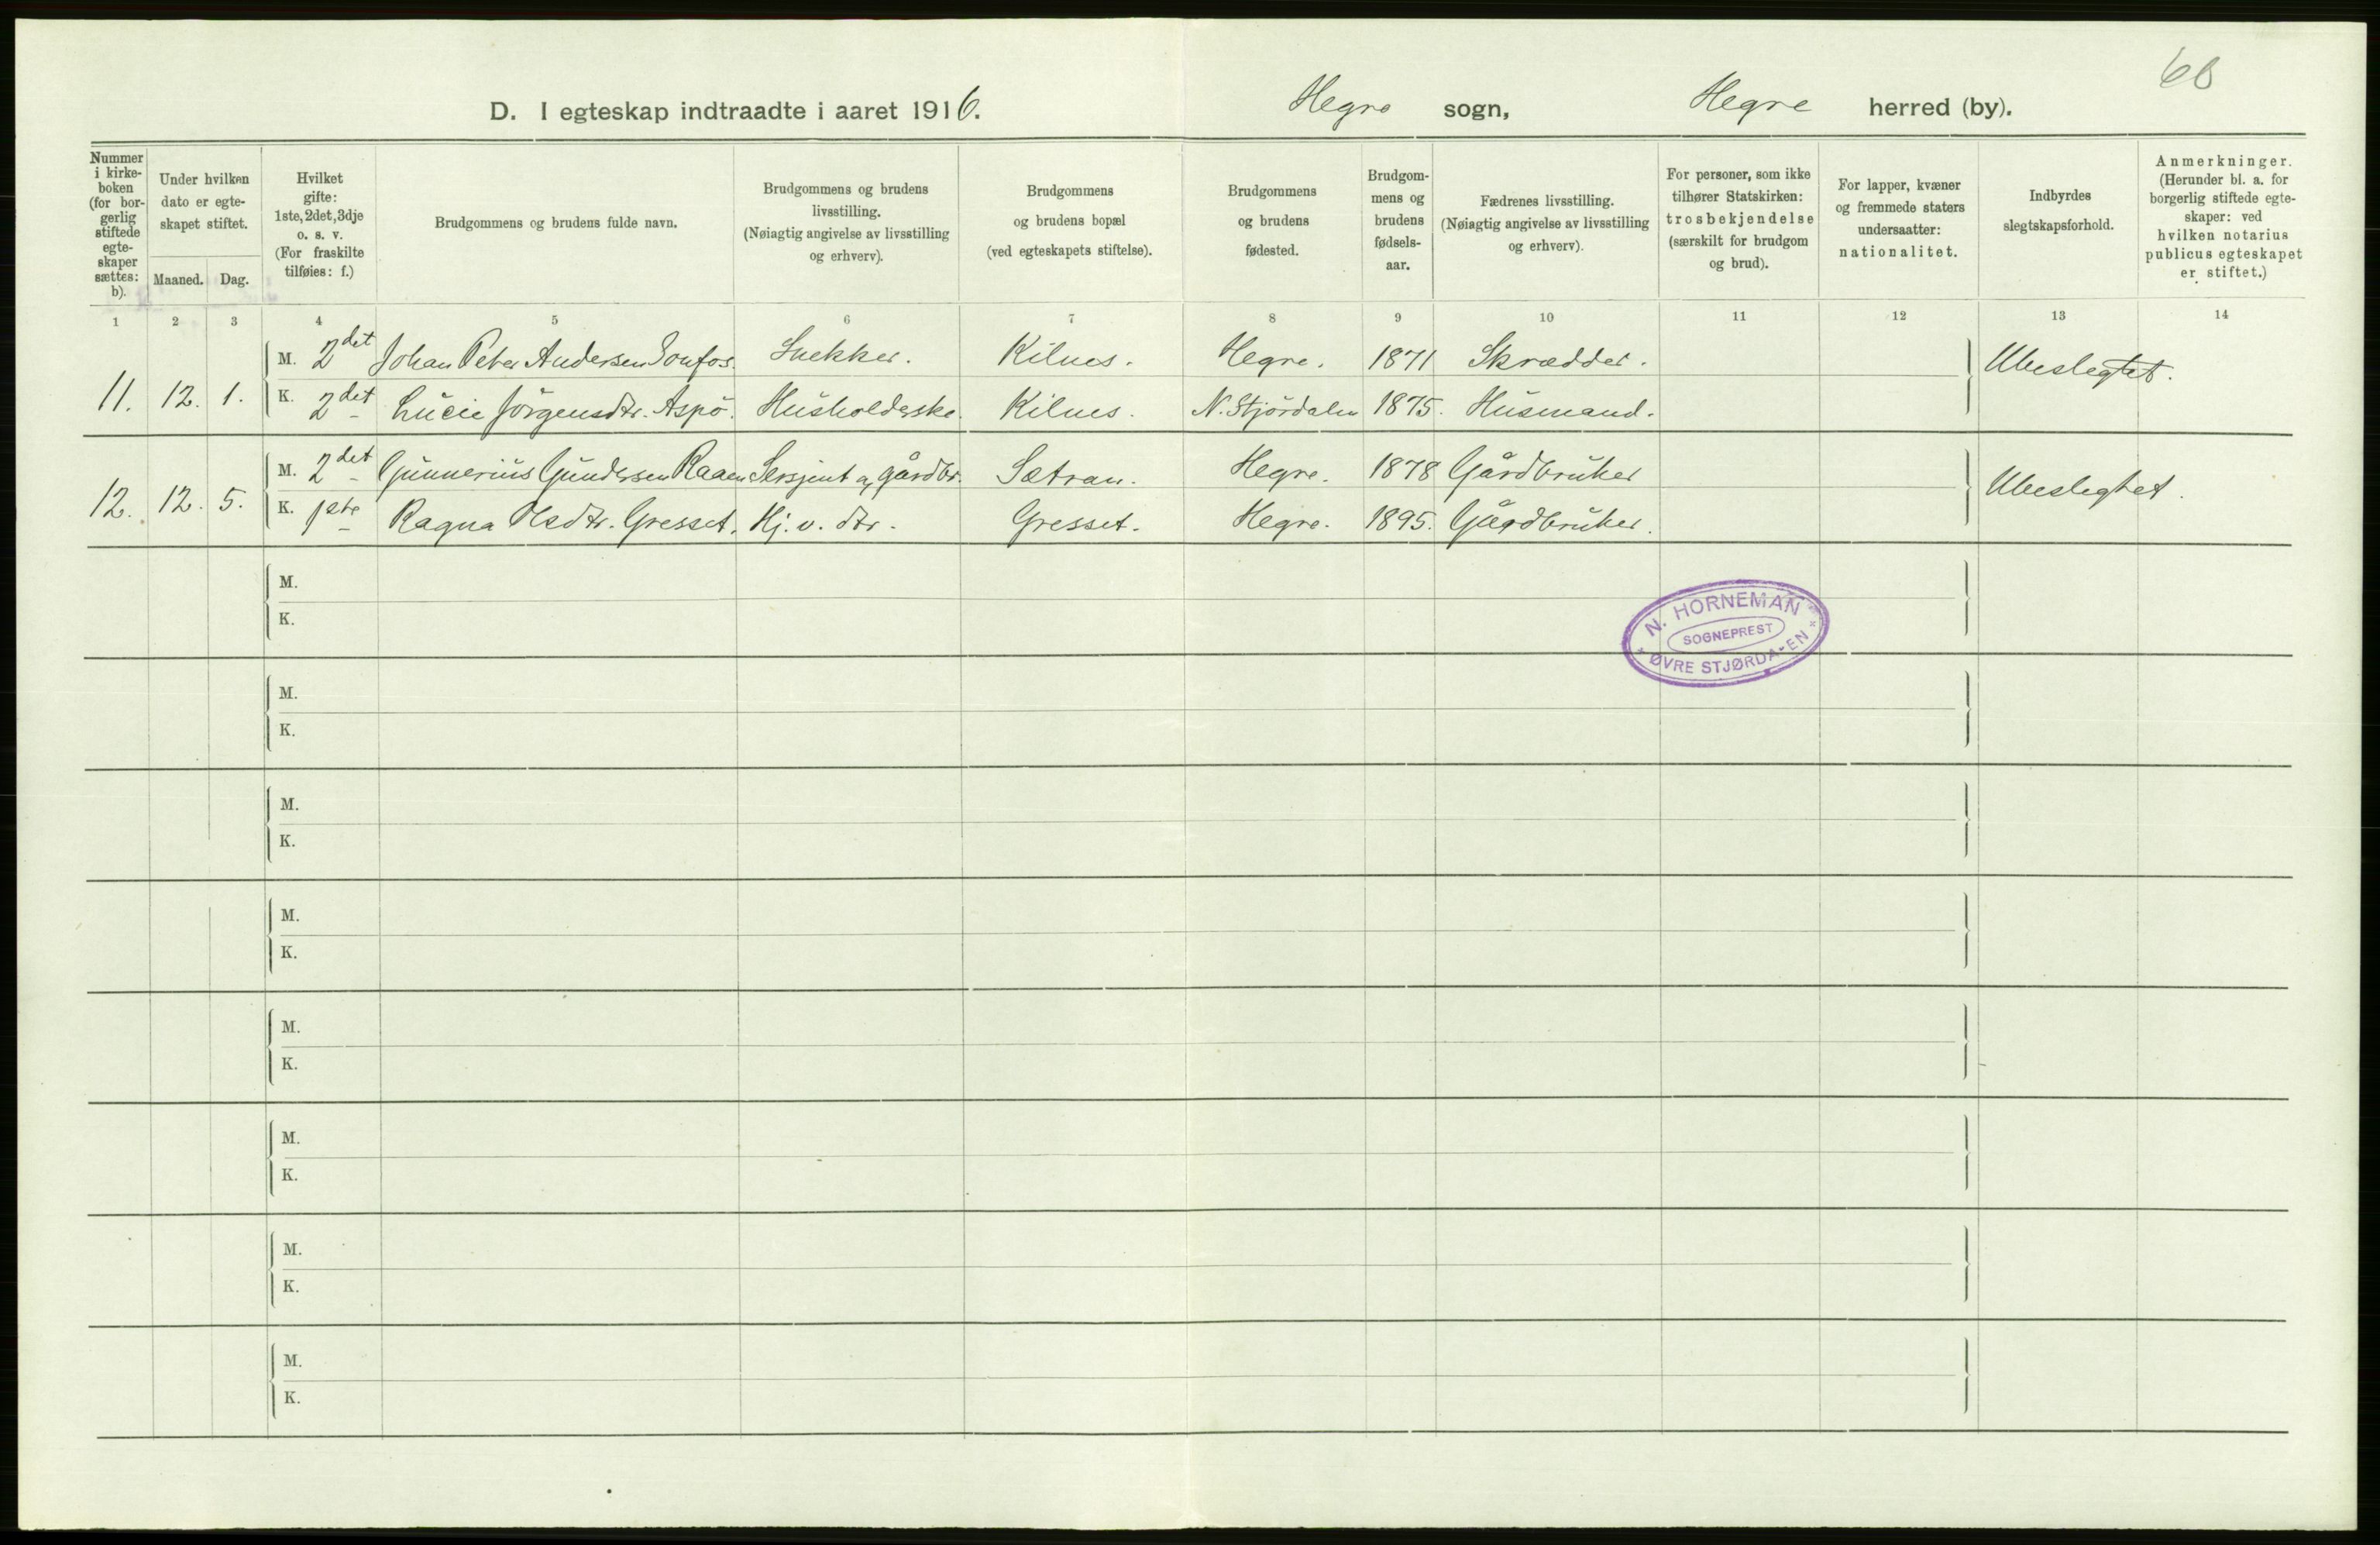 60
D. I egteskap indtraadte i aaret 1916. Hegre sogn, Hegre herred (by).
Nummer i kirke- boken (for bor- gerlig stiftede egte- skaper sættes: b).
Under hvilken dato er egte- skapet stiftet.
Maaned. Dag.
Hvilket gifte: 1ste, 2det, 3dje o. s. v. (For fraskilte tilføies: f.)
Brudgommens og brudens fulde navn.
Brudgommens og brudens livsstilling. (Nøiagtig angivelse av livsstilling og erhverv).
Brudgommens og brudens bopæl (ved egteskapets stiftelse).
Brudgommens og brudens fødested.
Brudgom- mens og brudens fødsels- aar.
Fædrenes livsstilling. (Nøiagtig angivelse av livsstilling og erhverv).
For personer, som ikke tilhører Statskirken: trosbekjendelse (særskilt for brudgom og brud).
For lapper, kvæner og fremmede staters undersaatter: nationalitet.
Indbyrdes slegtskapsforhold.
Anmerkninger. (Herunder bl. a. for borgerlig stiftede egte- skaper: ved hvilken notarius publicus egteskapet er stiftet.)
1 2 3 4 5 6 7 8 9 10 11 12 13 14
M. 2det Johan Peter Andersen Sonfos. Snekker. Kilnes. Hegre. 1871 Skrædder. Ubeslegtet.
11. 12. 1. K. 2det Lucie Jörgensdtr. Aspö. Husholderske. Kilnes. N. Stjördalen 1875. Husmand.
M. 2det Gunnerius Gundersen Raaen Sersjent og gårdbr. Sætran. Hegre. 1878 Gårdbruker Ubeslegtet.
12. 12. 5. K. 1ste Ragna Olsdtr. Gresset. Hj. v. dtr. Gresset. Hegre. 1895. Gårdbruker.
M.
K.
N. HORNEMAN
SOGNEPREST
ØVRE STJØRDA-EN
M.
K.
M.
K.
M.
K.
M.
K.
M.
K.
M.
K.
M.
K.